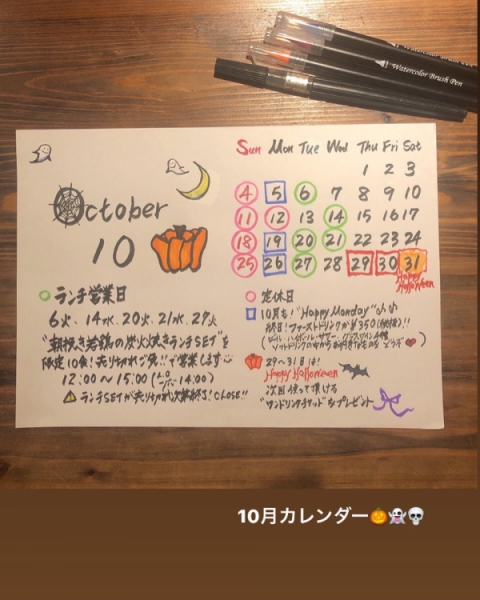 Watercolor Brush Pen
October
10
Sun Mon Tue Wed Thu Fri Sat
1 2 3
4 5 6 7 8 9 10
11 12 13 14 15 16 17
18 19 20 21 22 23 24
25 26 27 28 29 30 31
Happy
Halloween
ランチ営業日
6火、14水、20火、21水、27火
"朝挽き若鶏の炭火焼きランチSET"を
限定10食!売り切れ御免!!で営業します
12:00〜15:00 (L.O 14:00)
ランチSETが売り切れ次第終了!CLOSE!!
定休日
10月も!"Happy Monday"
終日!ファーストドリンクが¥350(税抜)!!
29〜31日は!
Happy Halloween
次回使って頂ける
"ワンドリンクチケット"をプレゼント
10月カレンダー🎃👻💀